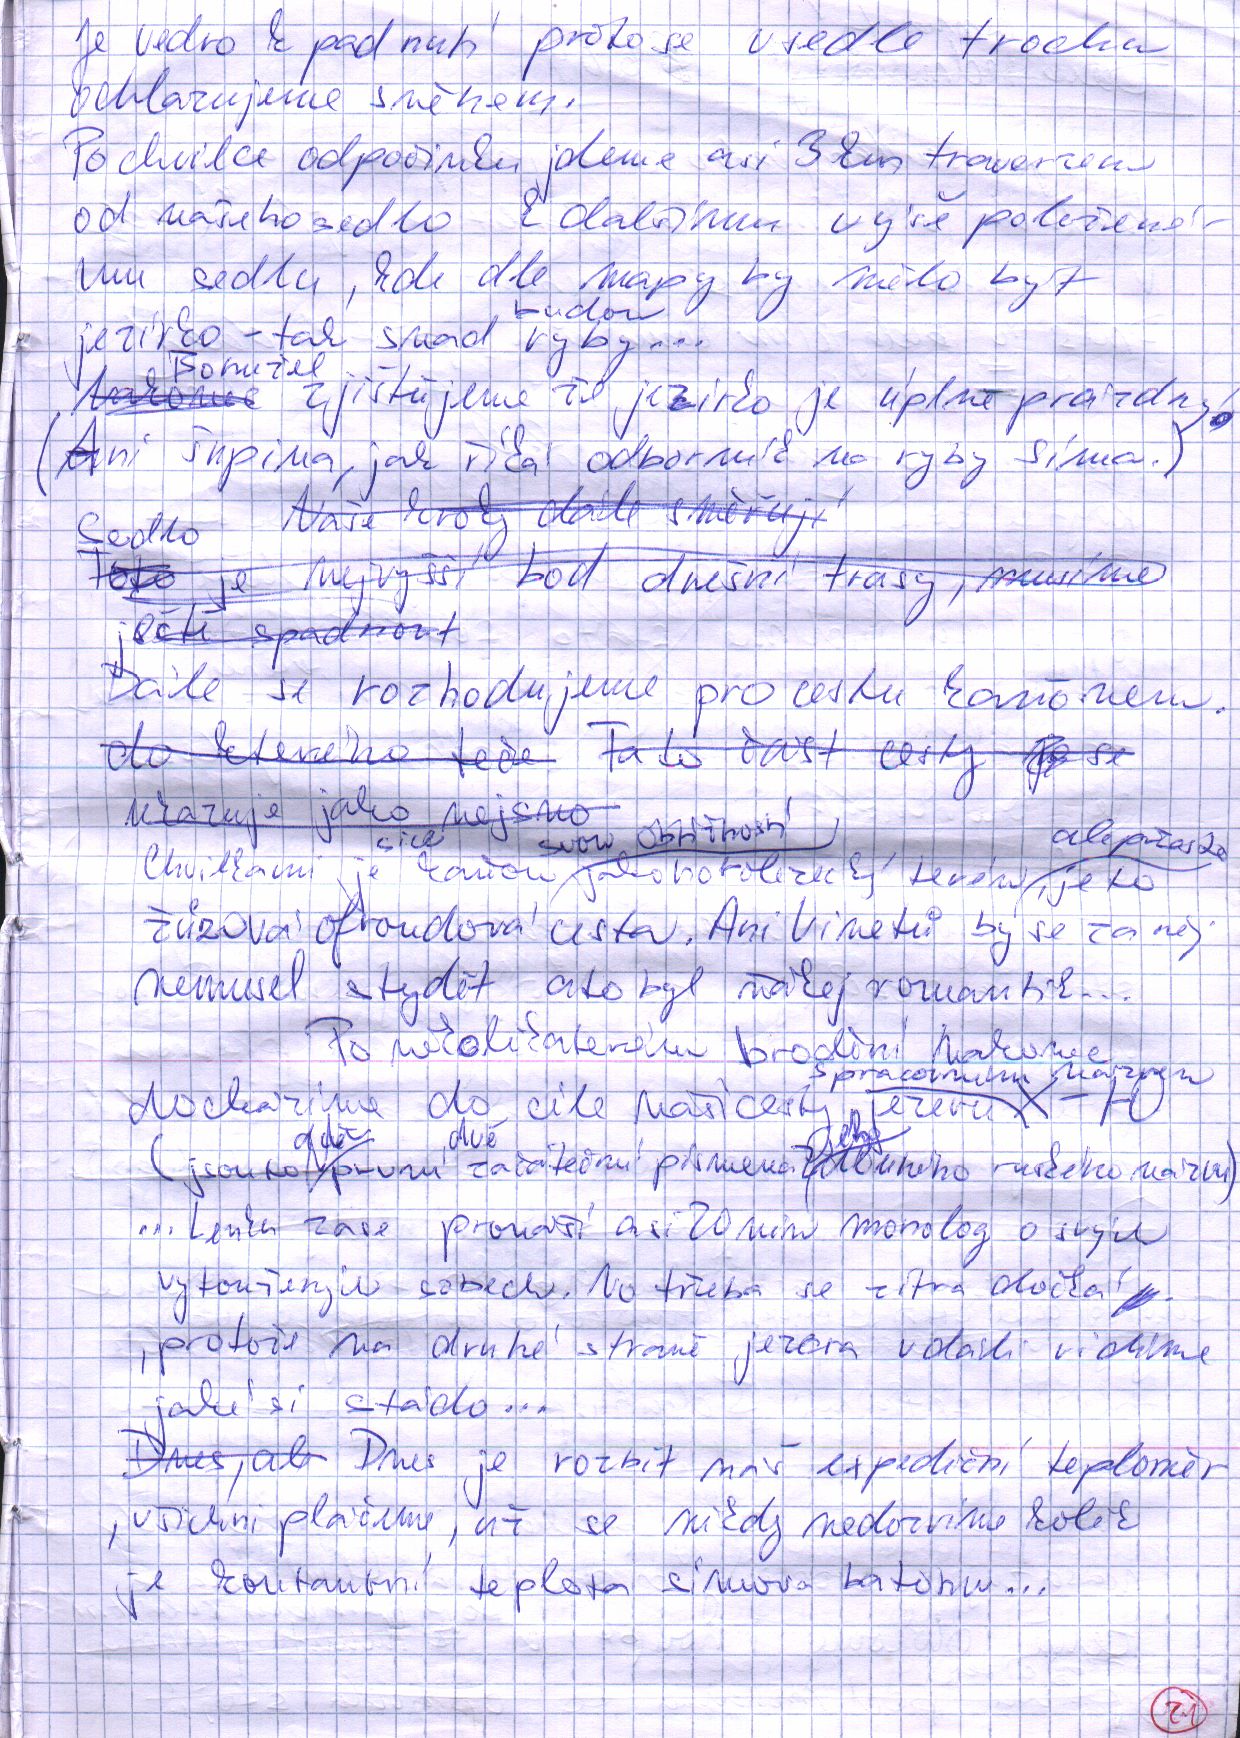 Je vedro k padnutí proto se v sedle trochu
ochlazujeme sněhem.
Po chvilce odpočinku jdeme asi 3 km traverzem
od našeho sedla k dalšímu výše položené-
mu sedlu, kde dle mapy by mělo být
budou
jezírko - tak snad ryby...
Bohužel
Nakonec zjišťujeme že jezírko je úplně prázdný!
(Ani šupina, jak říká odborník na ryby Šíma.)
Naše kroky dále směřují
Sedlo
Toto je nejvyšší bod dnešní trasy, musíme
ještě spadnout
Dále se rozhodujeme pro cestu kaňonem.
do kterého teče Tato část cesty se
ukazuje jako nejsno
sice svou obtížností ale přesto
Chvílkami je kaňon jako horolezecký terén, je to
žůžová ofroudová cesta. Ani Vinetů by se za něj
nemusel stydět a to byl ňákej romantik...
Po několikaterém brodění nakonec
s pracovním názvem
docházíme do cíle naší cesty jezeru X-H
dvě
(jsou to první začáteční písmena dlouhého ruského názvu)
...Lenka zase pronáší asi 20 min monolog o svých
vytoužených sobech. No třeba se zítra dočká
, protože na druhé straně jezera v dáli vidíme
jaké si stádo...
Dnes, ab Dnes je rozbit náš expediční teploměr
, všichni pláčeme, už se nikdy nedozvíme kolik
je konstantní teplota Šimova batohu...
21